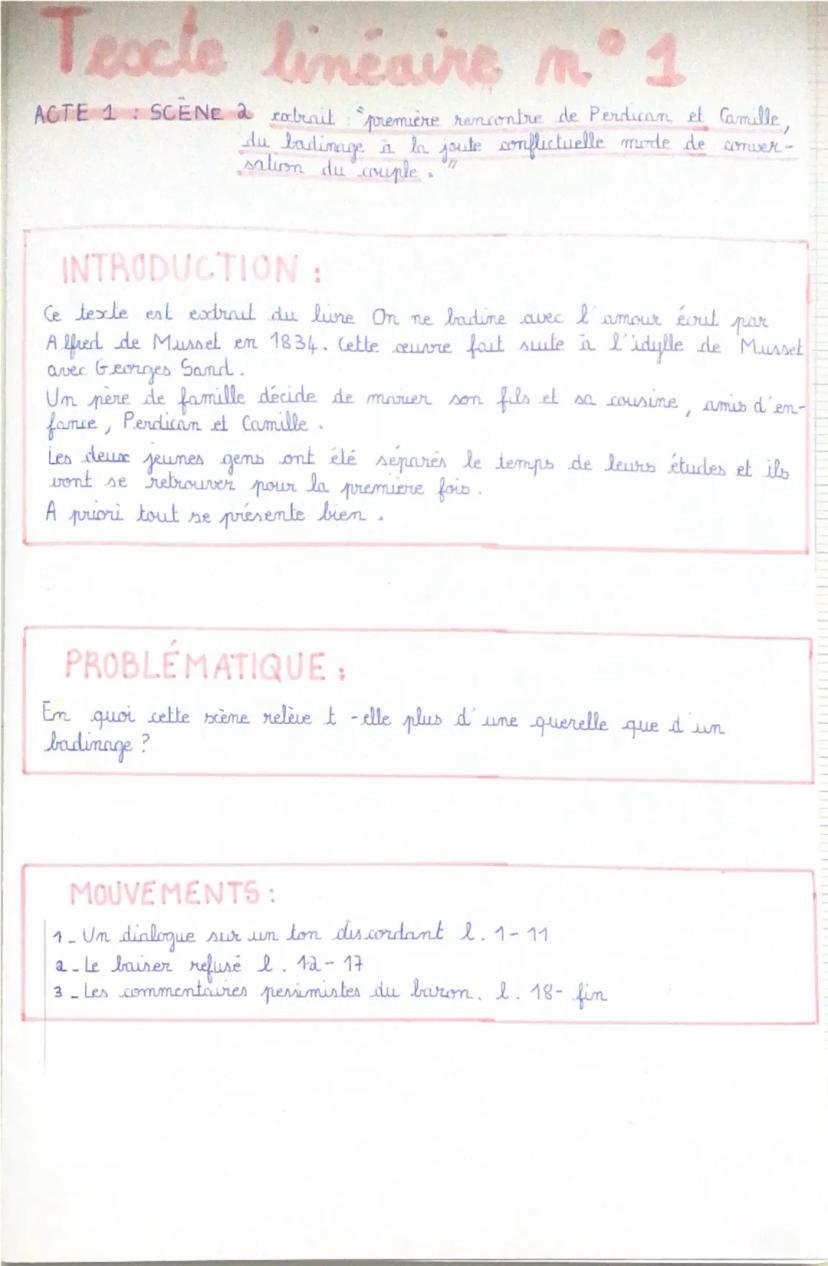 Texte linéaire n° 1
ACTE 1 : SCÈNE 2 extrait : "première rencontre de Perdican et Camille,
du badinage à la joute conflictuelle mode de conver-
sation du couple."
INTRODUCTION :
Ce texte est extrait du livre On ne badine avec l'amour écrit par
Alfred de Musset en 1834. Cette œuvre fait suite à l'idylle de Musset
avec Georges Sand.
Un père de famille décide de marier son fils et sa cousine, amis d'en-
fance, Perdican et Camille.
Les deux jeunes gens ont été séparés le temps de leurs études et ils
vont se retrouver pour la première fois.
A priori tout se présente bien.
PROBLÉMATIQUE :
En quoi cette scène relève t-elle plus d'une querelle que d'un
badinage ?
MOUVEMENTS :
1 - Un dialogue sur un ton discordant l. 1-11
2 - Le baiser refusé l. 12-17
3 - Les commentaires pessimistes du baron. l. 18- fin